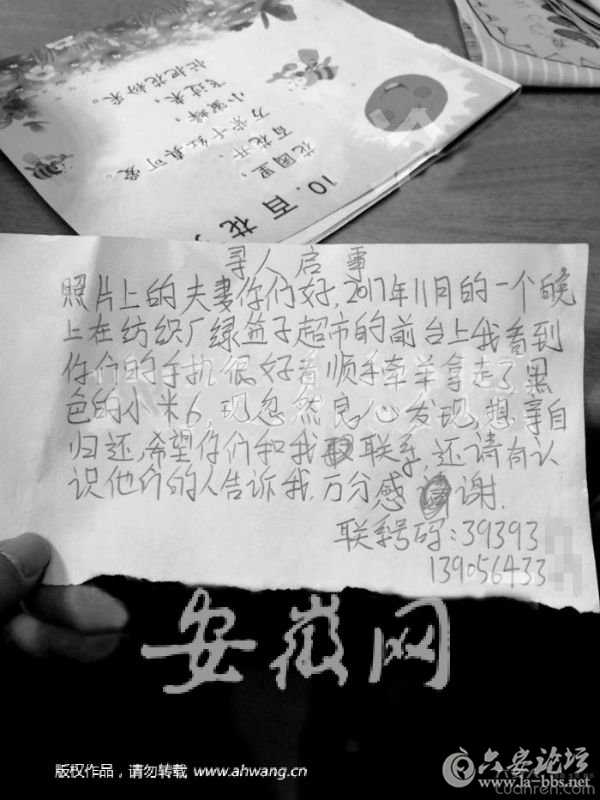 10. 百花
花园里，
百花开，
万紫千红真可爱。
小蜜蜂，
飞过来，
忙把花粉采。
寻人启事
照片上的夫妻你们好,2017年11月的一个晚
上在纺织厂绿益子超市的前台上我看到
你们的手机很好看顺手牵羊拿走了黑
色的小米6,现忽然良心发现,想亲自
归还,希望你们和我联系,还请有认
识他们的人告诉我,万分感谢.
联系号码:39393
139056433
安徽网
版权作品，请勿转载 www.ahwang.cn
六安论坛
www.la-bbs.net
cuanren.com